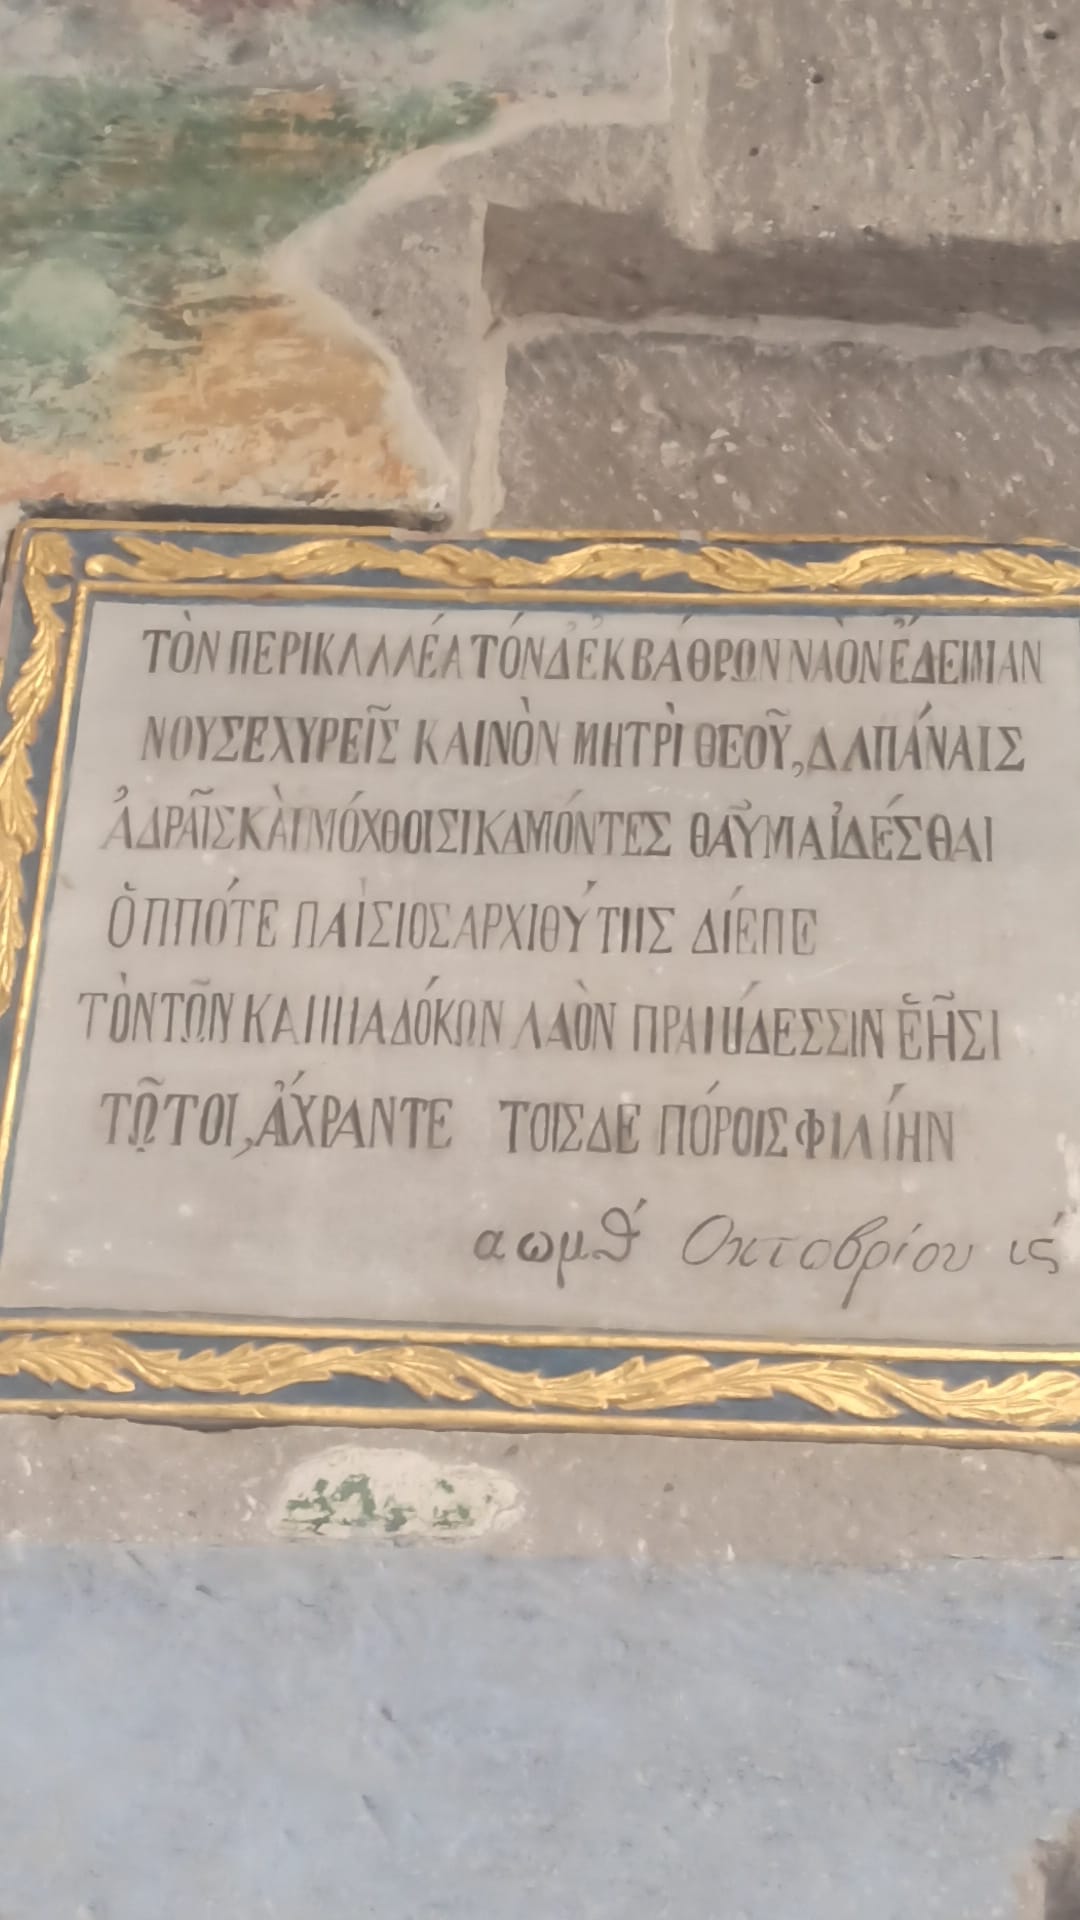 ΤῸΝ ΠΕΡΙΚΑΛΛΈΑ ΤΌΝΔ' ἘΚ ΒΆΘΡΩΝ ΝΑῸΝ ἜΔΕΙΜΑΝ
ΝΟΥΣΕΧΥΡΕΙ͂Σ ΚΑΙΝῸΝ ΜΗΤΡῚ ΘΕΟΥ͂, ΔΑΠΆΝΑΙΣ
ἈΔΡΑΙ͂Σ ΚΑῚ ΜΌΧΘΟΙΣΙ ΚΑΜΌΝΤΕΣ ΘΑΥ͂ΜΑ ἸΔΈΣΘΑΙ
ὉΠΠΌΤΕ ΠΑΪ́ΣΙΟΣ ΑΡΧΙΘΎΤΗΣ ΔΊΕΠΕ
ΤῸΝ ΤΩ͂Ν ΚΑΠΠΑΔΌΚΩΝ ΛΑῸΝ ΠΡΑΠΊΔΕΣΣΙΝ ἙΗ͂ΣΙ
ΤΩ͂ ΤΟΙ, ἌΧΡΑΝΤΕ ΤΟΙΣΔΕ ΠΌΡΟΙΣ ΦΙΛΊΗΝ
αωμθ́ Οκτοβρίου ις́